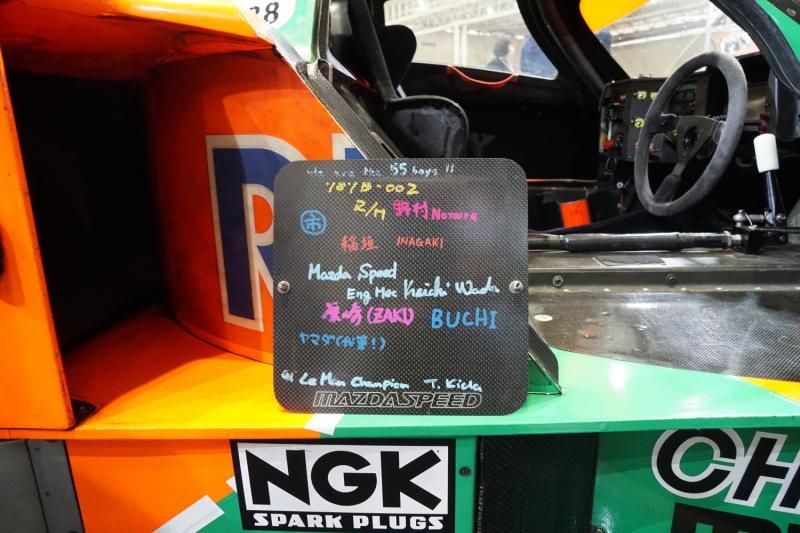 38
R
We are the 55 boys !!
787B-002
R/H 野村 Nomura
市
稲垣 INAGAKI
Mazda Speed
Eng Mec Keiichi Wada
(ZAKI) BUCHI
ヤマダ
Le Man Champion T. Kida
MAZDASPEED
NGK
SPARK PLUGS
CH